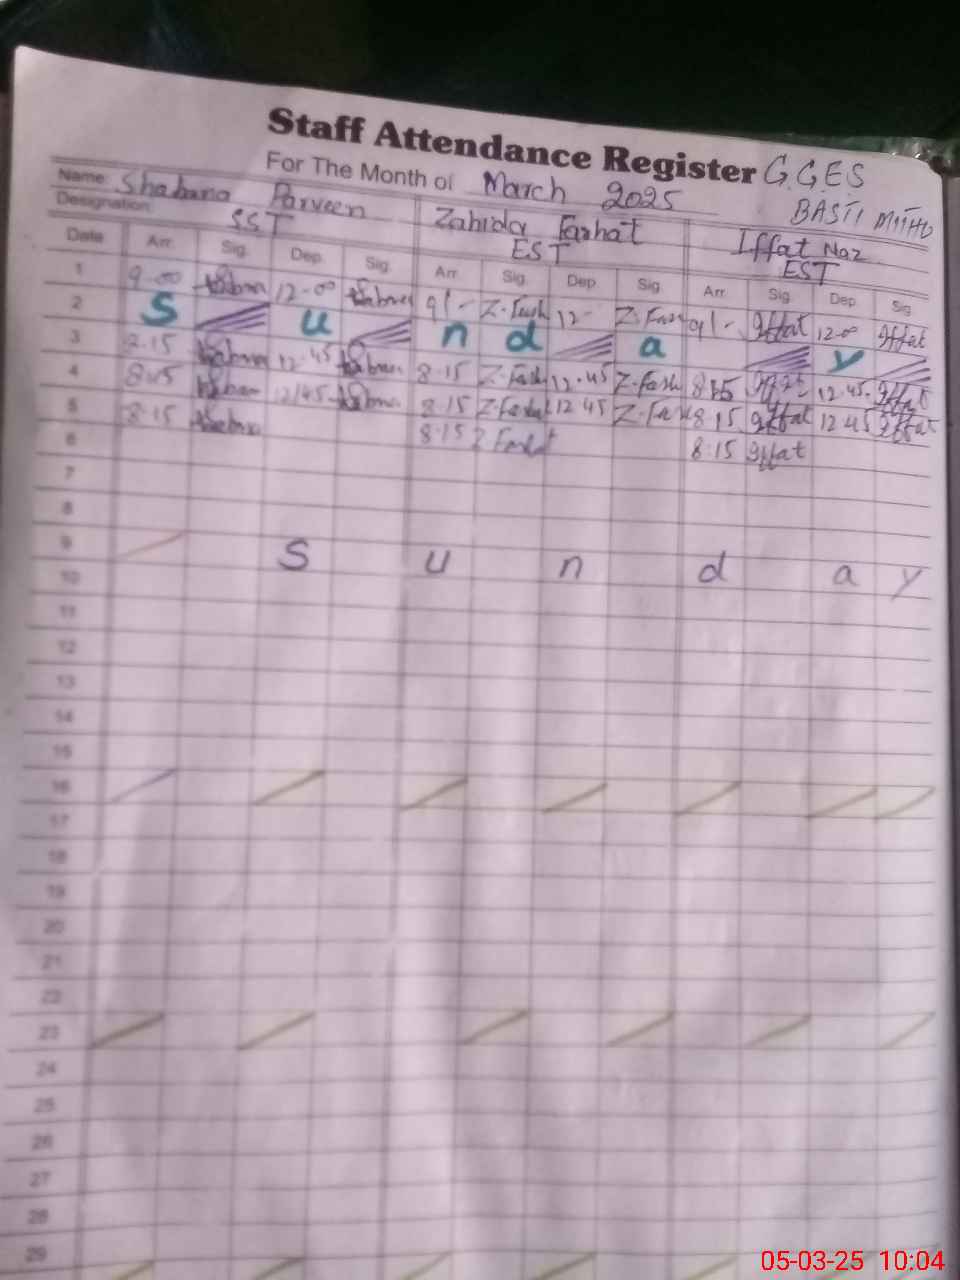 Staff Attendance Register G.G.E.S
For The Month of March 2025 BASTI MITHU
Name: Shabana Parveen Zahida Farhat Iffat Naz
Designation: SST EST EST
Date Arr. Sig. Dep. Sig. Arr. Sig. Dep. Sig. Arr. Sig. Dep. Sig.
1 9-00 12-00 9/- 12- Z. Farh 9/- Iffat 12-00 Iffat
2 S u n d a y
3 12.45 8.15 Z-Farh 12.45 Z-Farh 8:15 12.45 Iffat
4 12/45 8.15 Z-Farhat 12 45 Z-Farh 8.15 Iffat 12 45 Iffat
5 8.15 8.15 Z Farhat 8:15 Iffat
6
7
8
9 S u n d a y
10
11
12
13
14
15
16
17
18
19
20
21
22
23
24
25
26
27
28
29
05-03-25 10:04